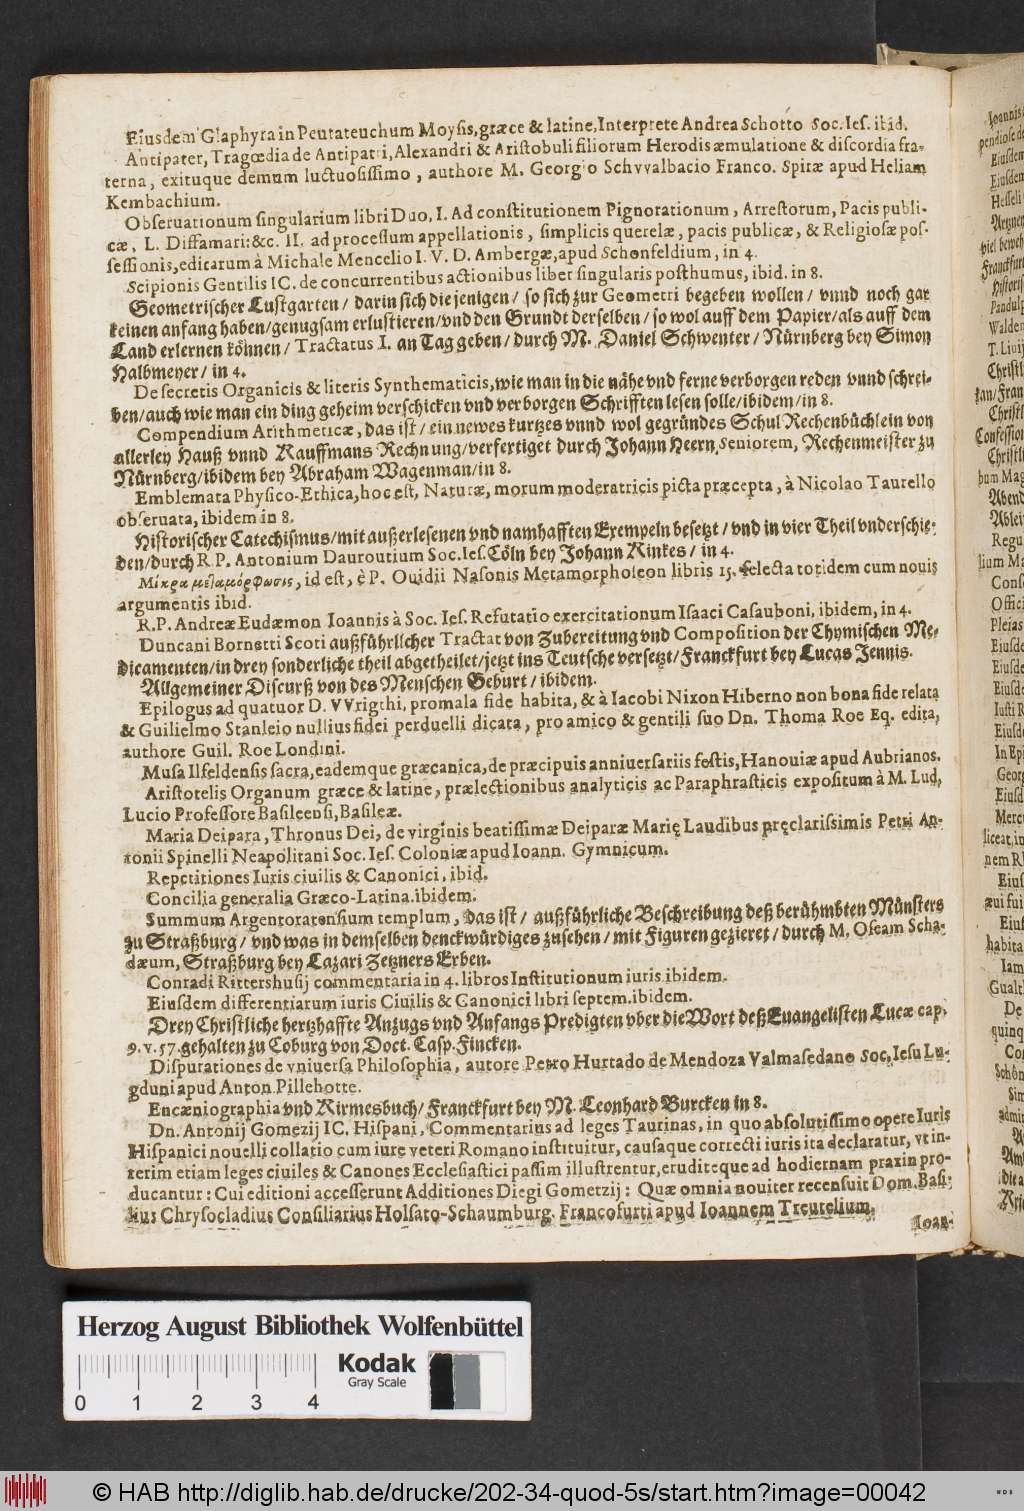 Eiusdem Glaphyra in Peutateuchum Moysis, græce & latine, Interprete Andrea Schotto Soc. Ies. ibid.
Antipater, Tragœdia de Antipatri, Alexandri & Aristobuli filiorum Herodis æmulatione & discordia fra-
terna, exituque demum luctuosissimo, authore M. Georgio Schvvalbacio Franco. Spiræ apud Heliam
Kembachium.
Obseruationum singularium libri Duo, I. Ad constitutionem Pignorationum, Arrestorum, Pacis publi-
cæ, L. Diffamari: &c. II. ad processum appellationis, simplicis querelæ, pacis publicæ, & Religiosæ pos-
sessionis, editarum à Michale Mencelio I. V. D. Ambergæ, apud Schonfeldium, in 4.
Scipionis Gentilis IC. de concurrentibus actionibus liber singularis posthumus, ibid. in 8.
Geometrischer Lustgarten / darin sich die jenigen / so sich zur Geometri begeben wollen / vnnd noch gar
keinen anfang haben / genugsam erlustieren / vnd den Grundt derselben / so wol auff dem Papier / als auff dem
Land erlernen können / Tractatus I. an Tag geben / durch M. Daniel Schwenter / Nürnberg bey Simon
Halbmeyer / in 4.
De secretis Organicis & literis Synthematicis, wie man in die nähe vnd ferne verborgen reden vnnd schrei-
ben / auch wie man ein ding geheim verschicken vnd verborgen Schrifften lesen solle / ibidem / in 8.
Compendium Arithmeticæ, das ist / ein newes kurtzes vnnd wol gegründes Schul Rechenbüchlein von
allerley Hauß vnnd Kauffmans Rechnung / verfertiget durch Johann Heern, Seniorem, Rechenmeister zu
Nürnberg / ibidem bey Abraham Wagenman / in 8.
Emblemata Physico-Ethica, hoc est, Naturæ, morum moderatricis picta præcepta, à Nicolao Taurello
obseruata, ibidem in 8.
Historischer Catechismus / mit außerlesenen vnd namhafften Exempeln besetzt / vnd in vier Theil vnderschie-
den / durch R. P. Antonium Dauroutium Soc. Ies. Cöln bey Johann Kinkes / in 4.
Μικρα μεταμόρφωσις, id est, è P. Ouidii Nasonis Metamorphoseon libris 15. selecta totidem cum nouis
argumentis ibid.
R. P. Andreæ Eudæmon Ioannis à Soc. Ies. Refutatio exercitationum Isaaci Casauboni, ibidem, in 4.
Duncani Bornetti Scoti außführlicher Tractat von Zubereitung vnd Composition der Chymischen Me-
dicamenten / in drey sonderliche theil abgetheilet / jetzt ins Teutsche versetzt / Franckfurt bey Lucas Jennis.
Allgemeiner Discurß von des Menschen Geburt / ibidem.
Epilogus ad quatuor D. VVrigthi, pro mala fide habita, & à Iacobi Nixon Hiberno non bona fide relata
& Guilielmo Stanleio nullius fidei perduelli dicata, pro amico & gentili suo Dn. Thoma Roe Eq. edita,
authore Guil. Roe Londini.
Musa Ilfeldensis sacra, eademque græcanica, de præcipuis anniuersariis festis, Hanouiæ apud Aubrianos.
Aristotelis Organum græce & latine, prælectionibus analyticis ac Paraphrasticis expositum à M. Lud.
Lucio Professore Basileensi, Basileæ.
Maria Deipara, Thronus Dei, de virginis beatissimæ Deiparæ Marię Laudibus pręclarissimis Petri An-
tonii Spinelli Neapolitani Soc. Ies. Coloniæ apud Ioann. Gymnicum.
Repetitiones Iuris ciuilis & Canonici, ibid.
Concilia generalia Græco-Latina. ibidem.
Summum Argentoratensium templum, das ist / außführliche Beschreibung deß berühmbten Münsters
zu Straßburg / vnd was in demselben denckwürdiges zusehen / mit Figuren gezieret / durch M. Oseam Scha-
dæum, Straßburg bey Lazari Zetzners Erben.
Conradi Rittershusij commentaria in 4. libros Institutionum iuris ibidem.
Eiusdem differentiarum iuris Ciuilis & Canonici libri septem. ibidem.
Drey Christliche hertzhaffte Anzugs vnd Anfangs Predigten vber die Wort deß Euangelisten Lucæ cap.
9. v. 57. gehalten zu Coburg von Doct. Casp. Fincken.
Disputationes de vniuersa Philosophia, autore Petro Hurtado de Mendoza Valmasedano Soc. Iesu Lu-
gduni apud Anton. Pillehotte.
Encæniographia vnd Kirmesbuch / Franckfurt bey M. Leonhard Burcken in 8.
Dn. Antonij Gomezij IC. Hispani, Commentarius ad leges Taurinas, in quo absolutissimo opere Iuris
Hispanici nouelli collatio cum iure veteri Romano instituitur, causaque correcti iuris ita declaratur, vt in-
terim etiam leges ciuiles & Canones Ecclesiastici passim illustrentur, eruditeque ad hodiernam praxin pro-
ducantur: Cui editioni accesserunt Additiones Diegi Gometzij: Quæ omnia nouiter recensuit Dom. Basi-
lius Chrysocladius Consiliarius Holsato-Schaumburg. Francofurti apud Ioannem Treutelium.
Ioan-
Herzog August Bibliothek Wolfenbüttel
Kodak
Gray Scale
0 1 2 3 4
© HAB http://diglib.hab.de/drucke/202-34-quod-5s/start.htm?image=00042